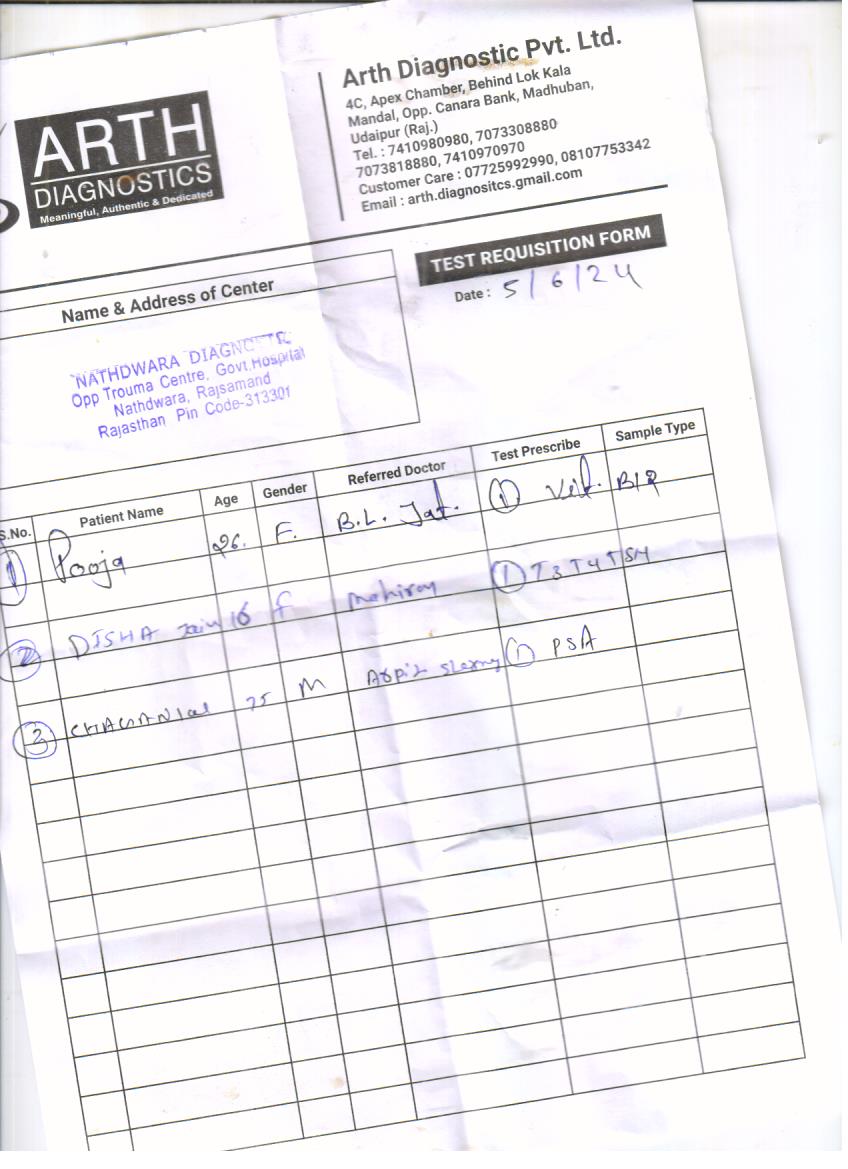 ARTH
DIAGNOSTICS
Meaningful, Authentic & Dedicated
Arth Diagnostic Pvt. Ltd.
4C, Apex Chamber, Behind Lok Kala
Mandal, Opp. Canara Bank, Madhuban,
Udaipur (Raj.)
Tel. : 7410980980, 7073308880
7073818880, 7410970970
Customer Care : 07725992990, 08107753342
Email : arth.diagnositcs.gmail.com
TEST REQUISITION FORM
Date : 5/6/24
Name & Address of Center
NATHDWARA DIAGNOSTIC
Opp Trouma Centre, Govt.Hospital
Nathdwara, Rajsamand
Rajasthan Pin Code-313301
S.No. Patient Name Age Gender Referred Doctor Test Prescribe Sample Type
1 Pooja 26. F. B.L. Jat. 1 Vit. B12
2 DISHA Jain 16 f 1 T3 T4 TSH
3 CHAGANlal 75 M Arpit 1 PSA